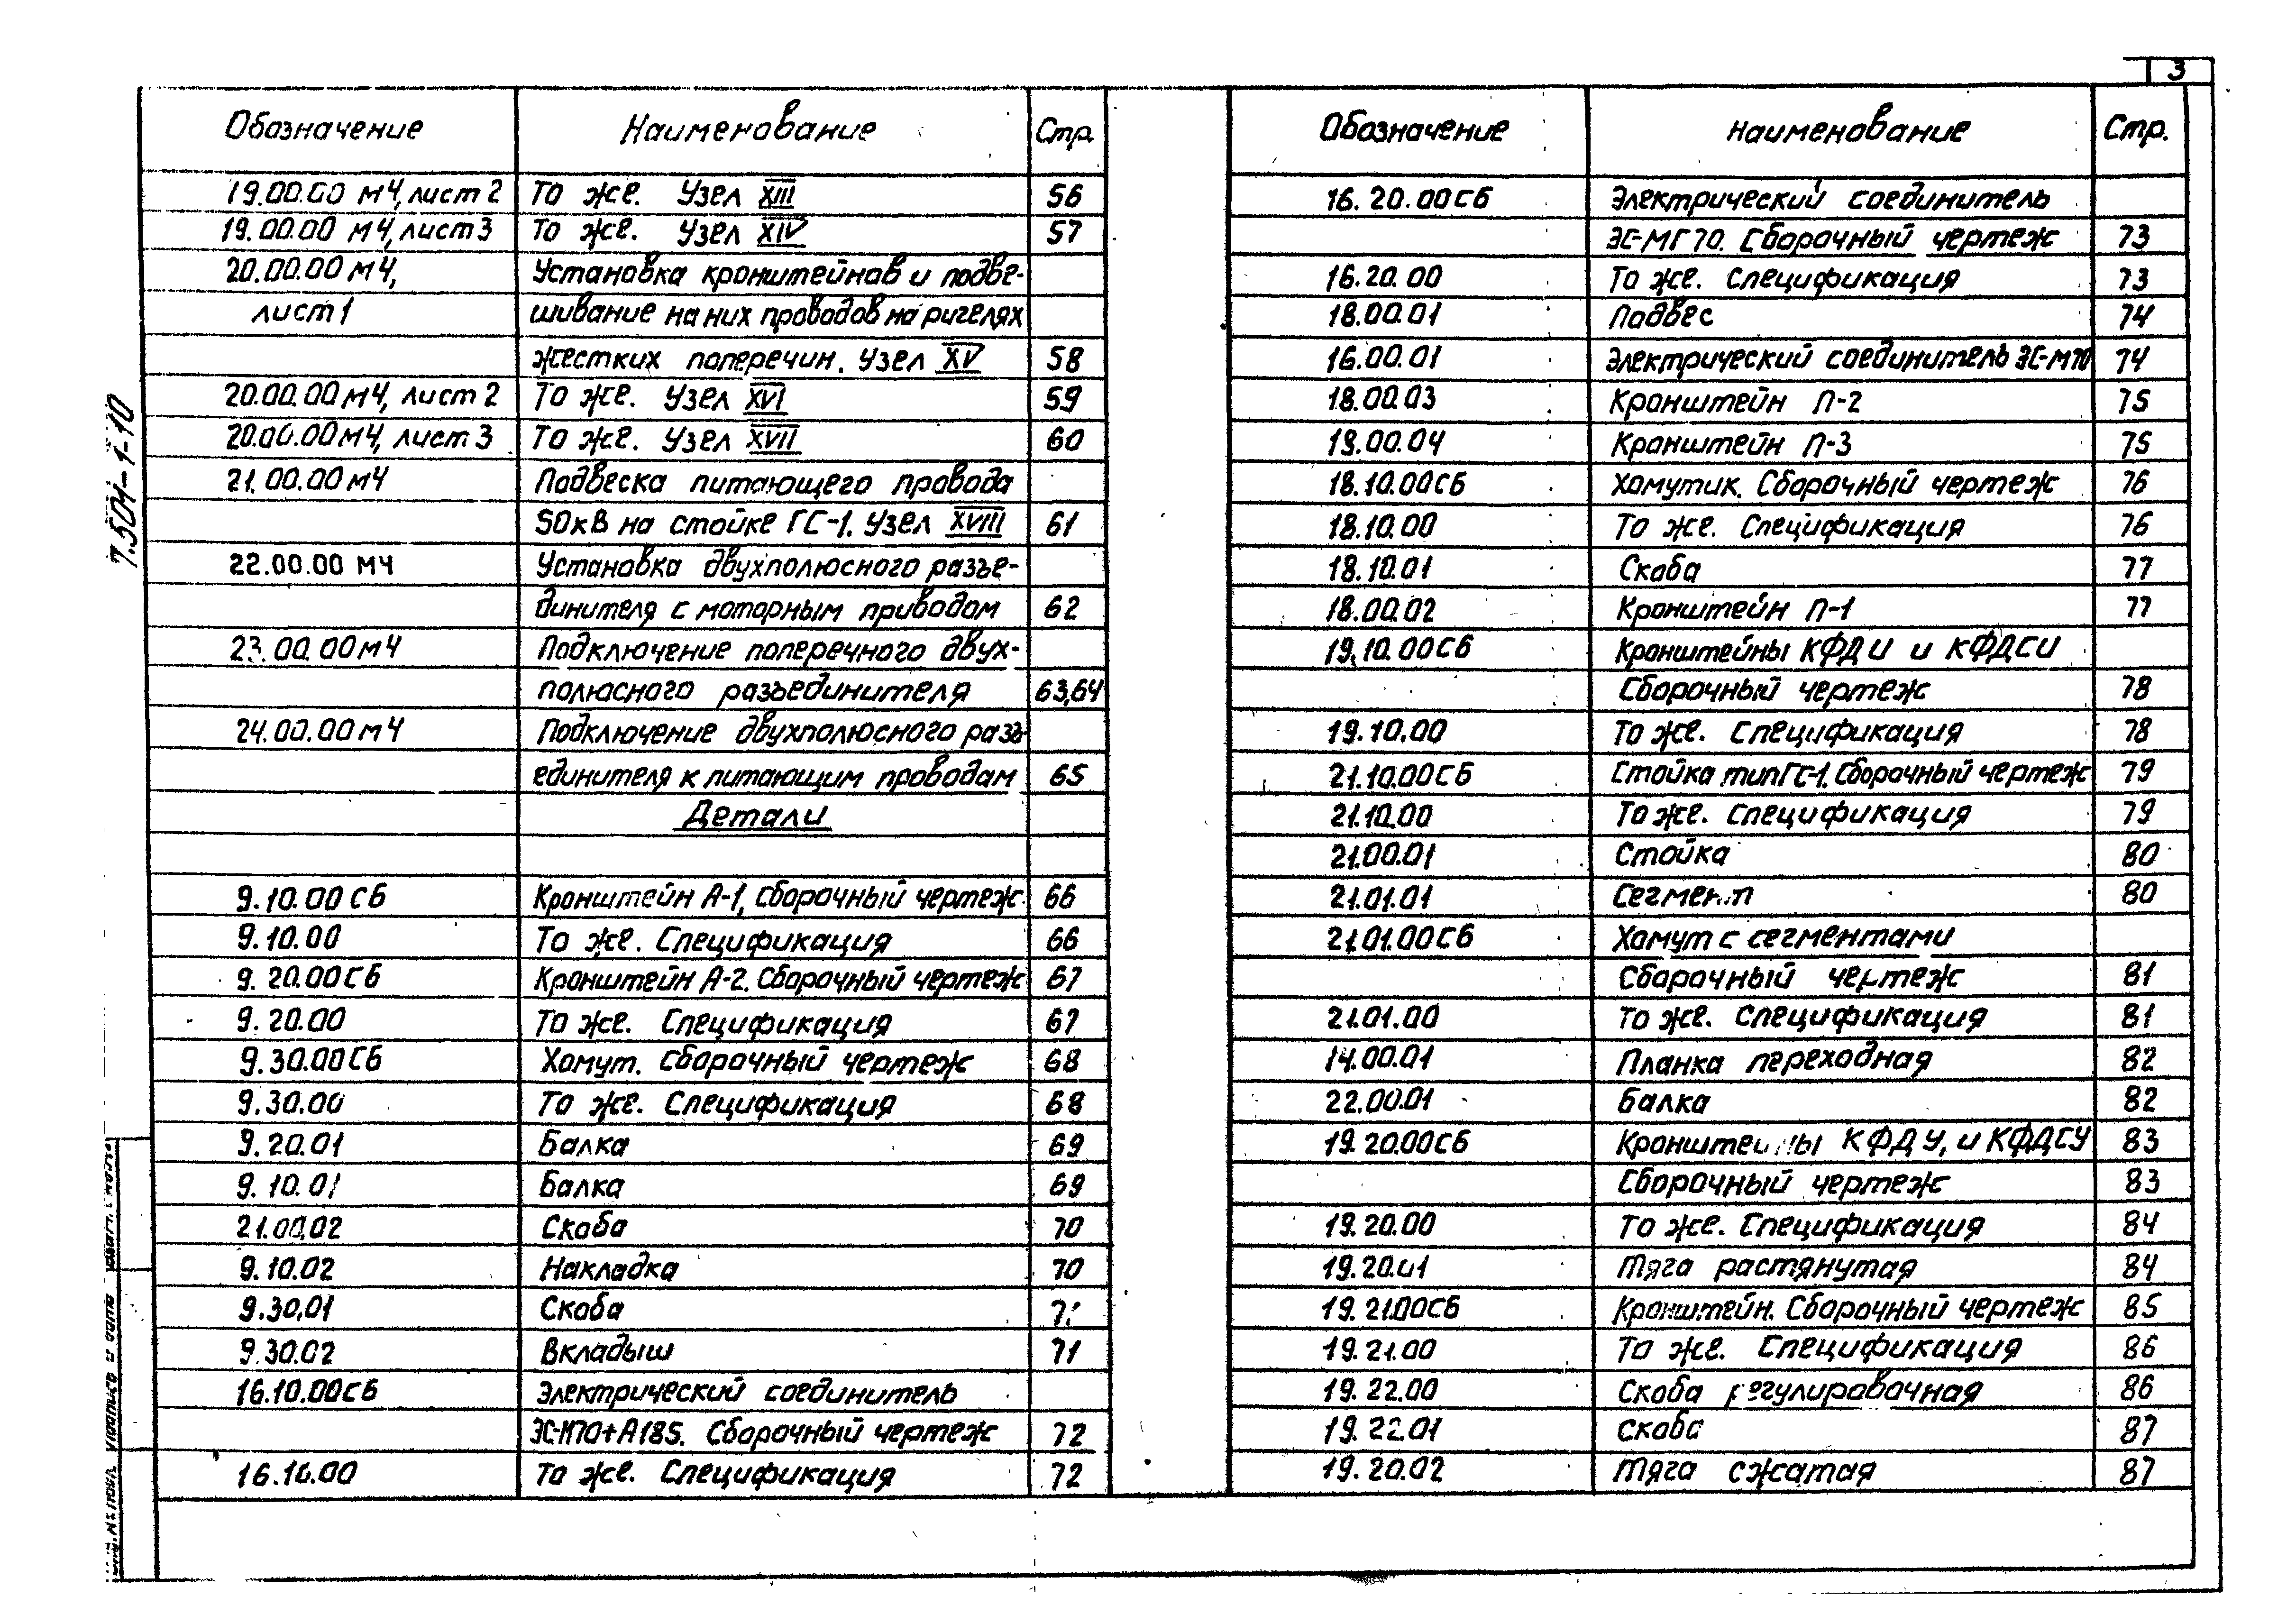 3
7.501-1-10
Обозначение Наименование Стр.
19.00.00 МЧ, лист 2 То же. Узел XIII 56
19.00.00 МЧ, лист 3 То же. Узел XIV 57
20.00.00 МЧ, Установка кронштейнов и подве-
лист 1 шивание на них проводов на ригелях
жестких поперечин. Узел XV 58
20.00.00 МЧ, лист 2 То же. Узел XVI 59
20.00.00 МЧ, лист 3 То же. Узел XVII 60
21.00.00 МЧ Подвеска питающего провода
50кВ на стойке ГС-1. Узел XVIII 61
22.00.00 МЧ Установка двухполюсного разъе-
динителя с моторным приводом 62
23.00.00 МЧ Подключение поперечного двух-
полюсного разъединителя 63,64
24.00.00 МЧ Подключение двухполюсного разъ-
единителя к питающим проводам 65
Детали
9.10.00 СБ Кронштейн А-1, Сборочный чертеж 66
9.10.00 То же. Спецификация 66
9.20.00 СБ Кронштейн А-2. Сборочный чертеж 67
9.20.00 То же. Спецификация 67
9.30.00 СБ Хомут. Сборочный чертеж 68
9.30.00 То же. Спецификация 68
9.20.01 Балка 69
9.10.01 Балка 69
21.00.02 Скоба 70
9.10.02 Накладка 70
9.30.01 Скоба
9.30.02 Вкладыш 71
16.10.00 СБ Электрический соединитель
ЭС-М70+А185. Сборочный чертеж 72
16.10.00 То же. Спецификация 72
Обозначение Наименование Стр.
16.20.00 СБ Электрический соединитель
ЭС-МГ70. Сборочный чертеж 73
16.20.00 То же. Спецификация 73
18.00.01 Подвес 74
16.00.01 Электрический соединитель ЭС-М70 74
18.00.03 Кронштейн П-2 75
18.00.04 Кронштейн П-3 75
18.10.00 СБ Хомутик. Сборочный чертеж 76
18.10.00 То же. Спецификация 76
18.10.01 Скоба 77
18.00.02 Кронштейн П-1 77
19.10.00 СБ Кронштейны КФДИ и КФДСИ
Сборочный чертеж 78
19.10.00 То же. Спецификация 78
21.10.00 СБ Стойка тип ГС-1. Сборочный чертеж 79
21.10.00 То же. Спецификация 79
21.00.01 Стойка 80
21.01.01 Сегмент 80
21.01.00 СБ Хомут с сегментами
Сборочный чертеж 81
21.01.00 То же. Спецификация 81
14.00.01 Планка переходная 82
22.00.01 Балка 82
19.20.00 СБ Кронштейны КФДУ, и КФДСУ 83
Сборочный чертеж 83
19.20.00 То же. Спецификация 84
19.20.01 Тяга растянутая 84
19.21.00 СБ Кронштейн. Сборочный чертеж 85
19.21.00 То же. Спецификация 86
19.22.00 Скоба регулировочная 86
19.22.01 Скоба 87
19.20.02 Тяга сжатая 87